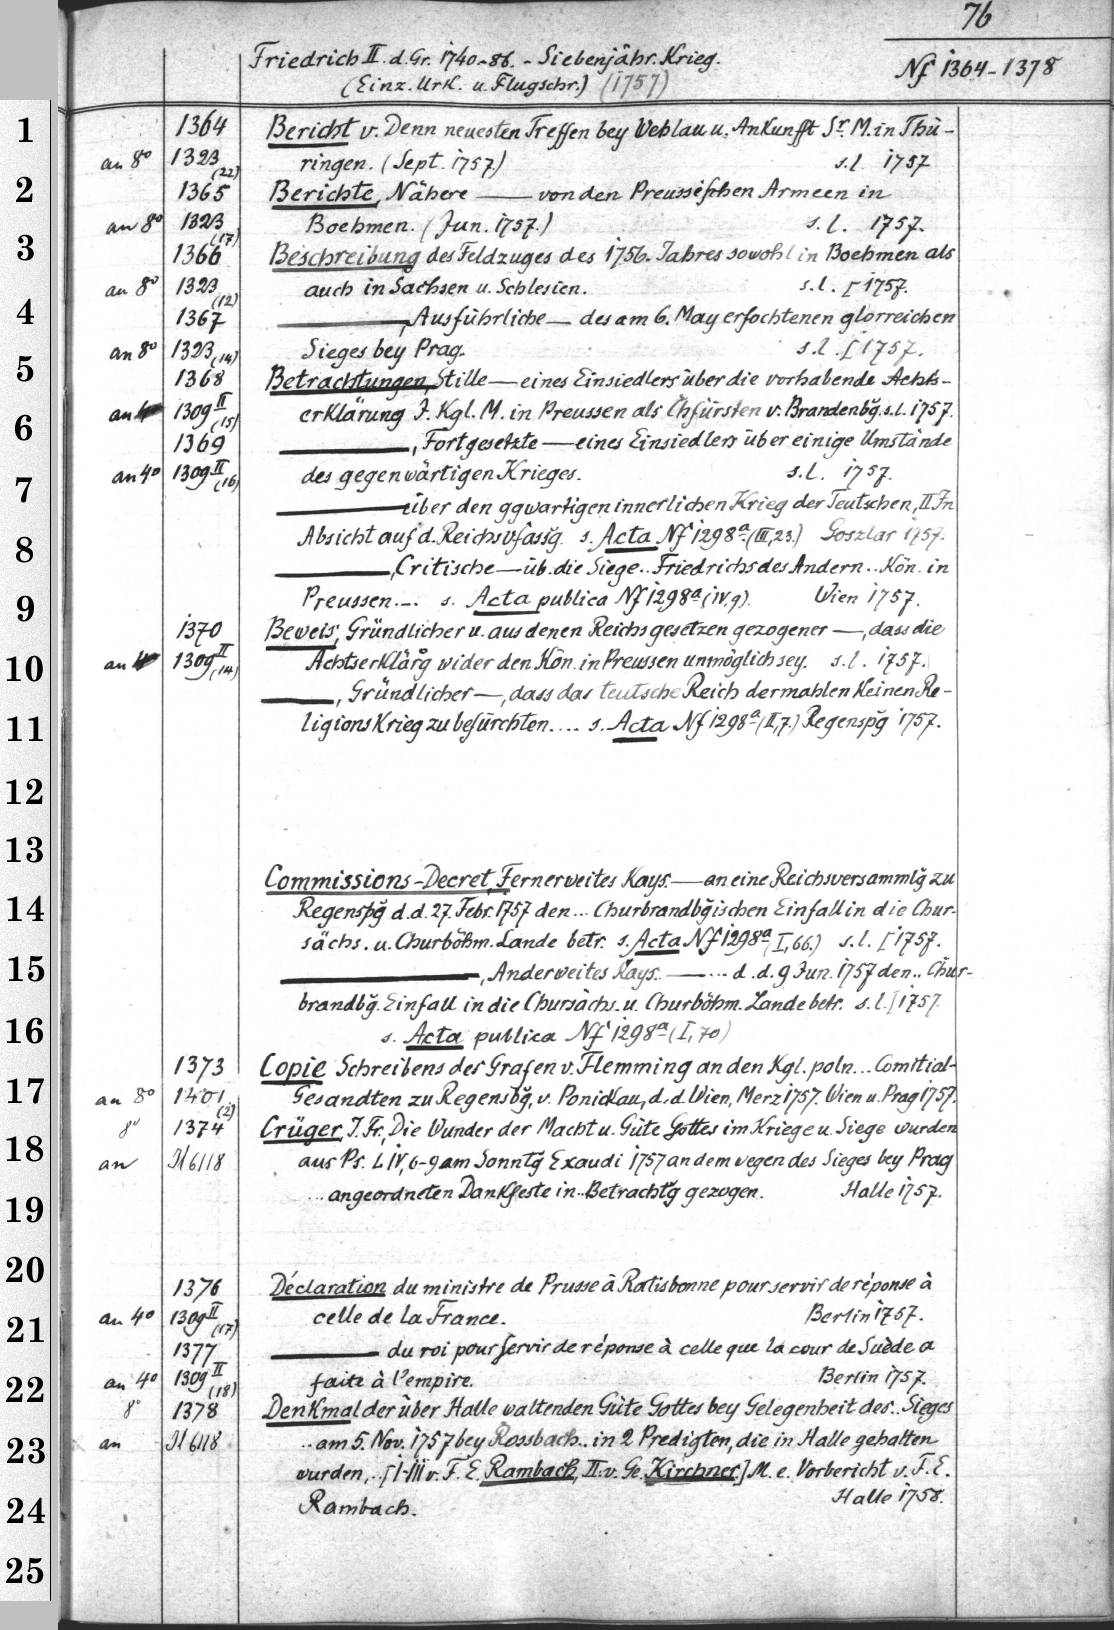 76
Friedrich II. d. Gr. 1740-86. - Siebenjähr. Krieg.
(Einz. Urk. u. Flugschr.) (1757)
Nf 1364-1378
1364 Bericht v. Denn neuesten Treffen bey Wehlau u. Ankunfft Sr. M. in Thü-
an 8° 1323 (22) ringen. (Sept. 1757) s.l. 1757
1365 Berichte, Nähere — von den Preussischen Armeen in
an 8° 1323 (17) Boehmen. (Jun. 1757.) s.l. 1757.
1366 Beschreibung des Feldzuges des 1756. Jahres sowohl in Boehmen als
an 8° 1323 (12) auch in Sachsen u. Schlesien. s.l. [1757.
1367 —, Ausführliche — des am 6. May erfochtenen glorreichen
an 8° 1323 (14) Sieges bey Prag. s.l. [1757.
1368 Betrachtungen, Stille — eines Einsiedlers über die vorhabende Achts-
an 4° 1309 II (15) erklärung I. Kgl. M. in Preussen als Chfürsten v. Brandenbg. s.l. 1757.
1369 —, Fortgesetzte — eines Einsiedlers über einige Umstände
an 4° 1309 II (16) des gegenwärtigen Krieges. s.l. 1757.
— über den ggwartigen innerlichen Krieg der Teutschen, II In
Absicht auf d. Reichsvfassg. s. Acta Nf 1298a (III,23.) Goszlar 1757.
—, Critische — üb. die Siege.. Friedrichs des Andern.. Kön. in
Preussen.-. s. Acta publica Nf 1298a (IV,9). Wien 1757.
1370 Beweis, Gründlicher u. aus denen Reichsgesetzen gezogener —, dass die
an 4° 1309 II (14) Achtserklärg wider den Kön. in Preussen unmöglich sey. s.l. 1757.
—, Gründlicher —, dass das teutsche Reich dermahlen keinen Re-
ligions Krieg zu befürchten.... s. Acta Nf 1298a (II,7.) Regenspg 1757.
Commissions-Decret, Fernerweites Kays. — an eine Reichsversammlg zu
Regenspg d.d. 27. Febr. 1757 den... Churbrandbgischen Einfall in die Chur-
sächs. u. Churböhm. Lande betr. s. Acta Nf 1298a (I,66.) s.l. [1757.
—, Anderweites Kays. — ... d.d. 9 Jun. 1757 den.. Chur-
brandbg. Einfall in die Chursächs. u. Churböhm. Lande betr. s.l. [1757.
s. Acta publica Nf 1298a (I,70)
1373 Copie Schreibens des Grafen v. Flemming an den Kgl. poln... Comitial-
an 8° 1401 (2) Gesandten zu Regensbg, v. Ponickau, d.d. Wien, Merz 1757. Wien u. Prag 1757.
8° 1374 Crüger, J. Fr., Die Wunder der Macht u. Güte Gottes im Kriege u. Siege wurden
an 6118 aus Ps. LIV, 6-9 am Sonntg Exaudi 1757 an dem wegen des Sieges bey Prag
... angeordneten Dankfeste in.. Betrachtg gezogen. Halle 1757.
1376 Déclaration du ministre de Prusse à Ratisbonne pour servir de réponse à
an 4° 1309 II (17) celle de la France. Berlin 1757.
1377 — du roi pour servir de réponse à celle que la cour de Suède a
an 4° 1309 II (18) faite à l'empire. Berlin 1757.
8° 1378 Denkmal der über Halle waltenden Güte Gottes bey Gelegenheit des.. Sieges
an 6118 .. am 5. Nov. 1757 bey Rossbach.. in 2 Predigten, die in Halle gehalten
wurden,.. [I-III v. F. E. Rambach, II. v. Ge. Kirchner.] M. e. Vorbericht v. F. E.
Rambach. Halle 1758.
1
2
3
4
5
6
7
8
9
10
11
12
13
14
15
16
17
18
19
20
21
22
23
24
25